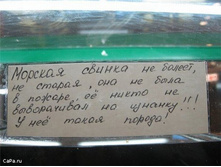 Морская свинка не болеет,
не старая, она не была
в пожаре, её никто не
выворачивал на изнанку...!!!
У неё такая порода!
CaPa.ru